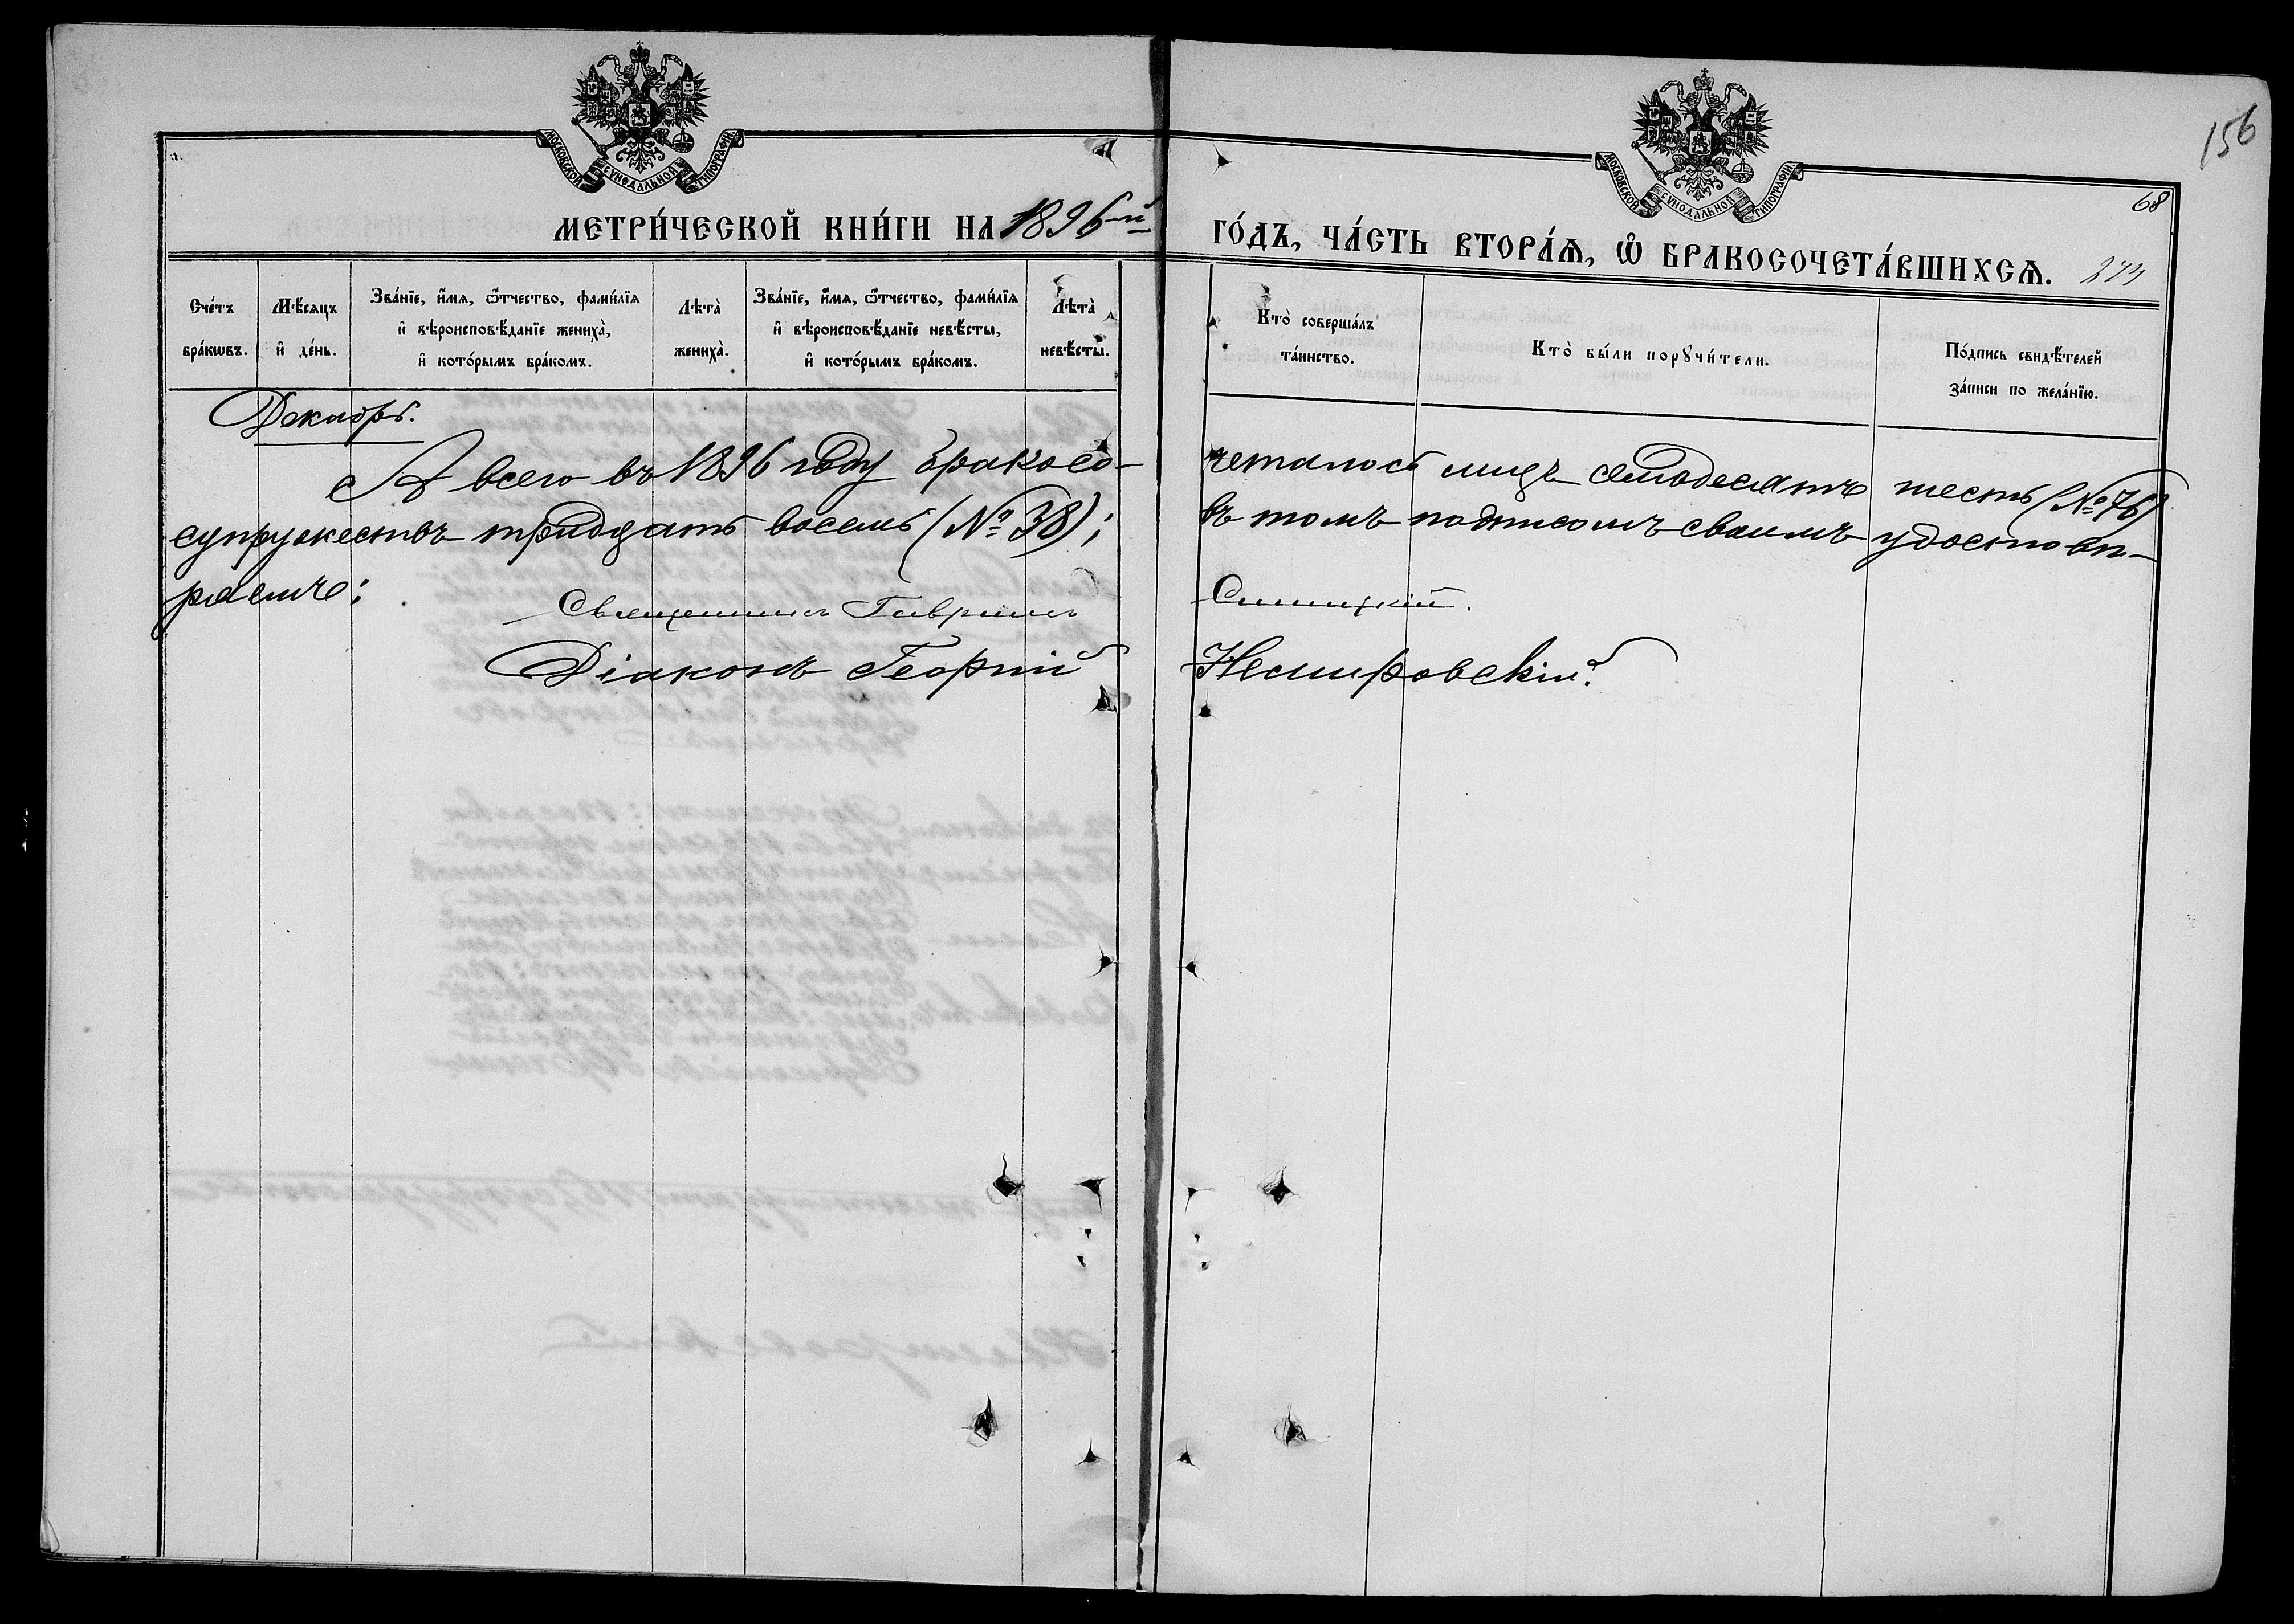 156
МОСКОВСКОЙ СУНОДАЛЬНОЙ ТИПОГРАФІИ
МОСКОВСКОЙ СУНОДАЛЬНОЙ ТИПОГРАФІИ
68
МЕТРИ́ЧЕСКОЙ КНИ́ГИ НА 1896-й ГО́ДЪ, ЧА́СТЬ ВТОРА́Ѧ, Ѡ БРАКОСОЧЕТА́ВШИХСѦ.
Сче́тъ бра́кѡвъ.
Мѣ́сяцъ и де́нь.
Зва́нїе, и́мя, ѻ҆́тчество, фами́лїя и вѣроисповѣ́данїе жениха̀, и кото́рымъ бра́комъ.
Лѣта̀ жениха̀.
Зва́нїе, и́мя, ѻ҆́тчество, фами́лїя и вѣроисповѣ́данїе невѣ́сты, и кото́рымъ бра́комъ.
Лѣта̀ невѣ́сты.
Кто̀ соверша́лъ та́инство.
Кто̀ бы́ли порꙋчи́тели.
По́дпись свидѣ́телей за́писи по жела́нїю.
Декабрь.
А всего въ 1896 году бракосо-четалось лицъ семьдесятъ шесть (№ 76)
супружествъ тридцать восемь (№ 38); въ томъ подписомъ своимъ удостовѣ-
ряемъ:
Священникъ Гавріилъ Синицкій.
Діаконъ Георгій Немировскій.